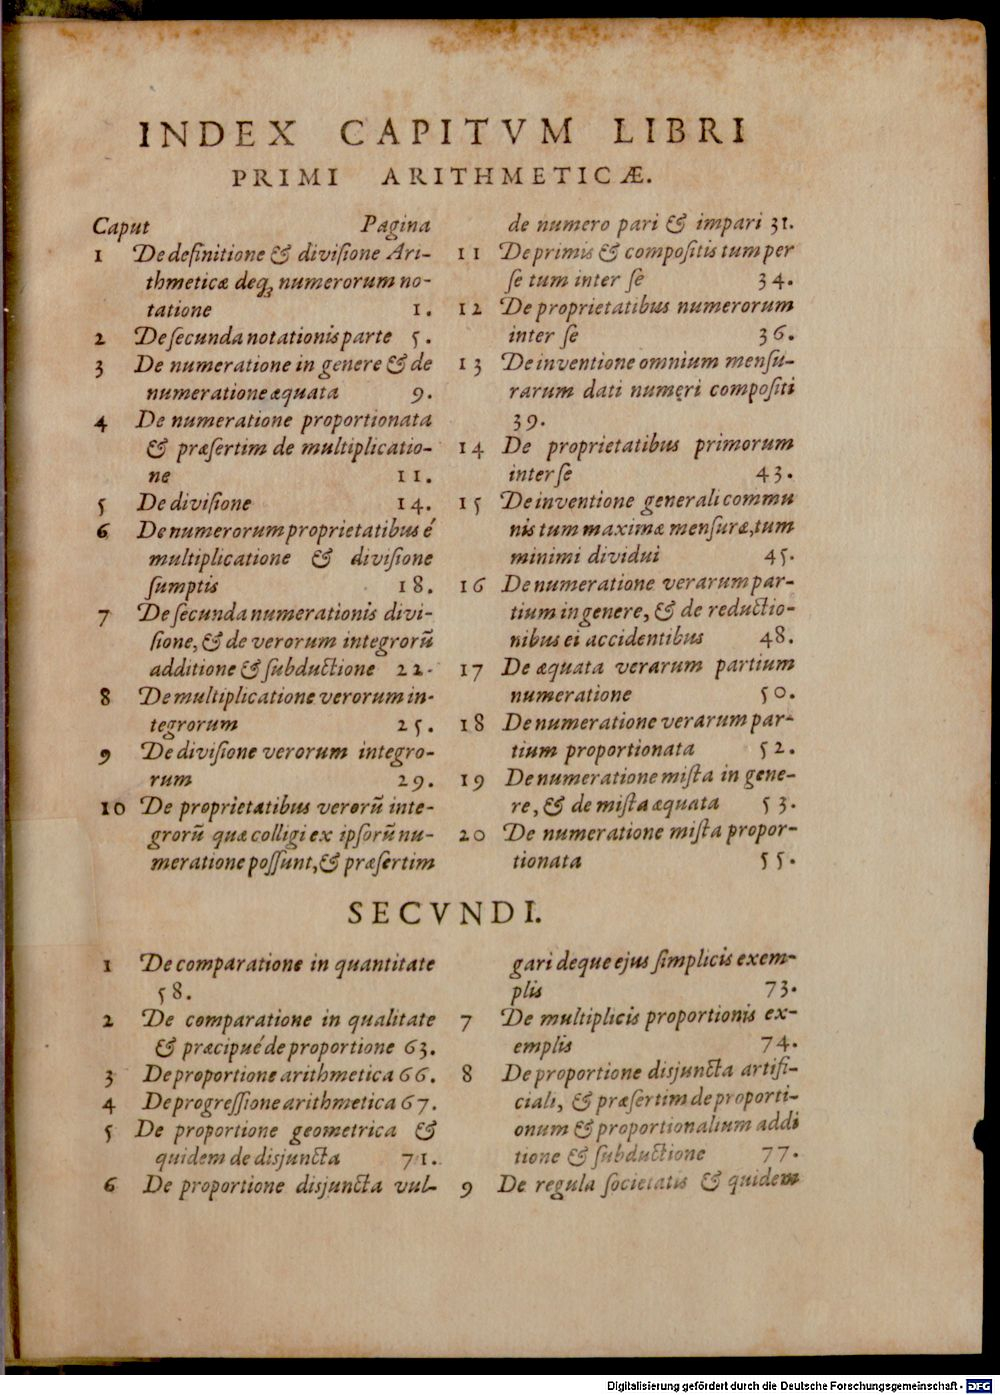 INDEX CAPITVM LIBRI
PRIMI ARITHMETICÆ.
Caput Pagina
1 De definitione & divisione Ari-
thmeticæ deq; numerorum no-
tatione 1.
2 De secunda notationis parte 5.
3 De numeratione in genere & de
numeratione æquata 9.
4 De numeratione proportionata
& præsertim de multiplicatio-
ne 11.
5 De divisione 14.
6 De numerorum proprietatibus é
multiplicatione & divisione
sumptis 18.
7 De secunda numerationis divi-
sione, & de verorum integrorū
additione & subductione 22.
8 De multiplicatione verorum in-
tegrorum 25.
9 De divisione verorum integro-
rum 29.
10 De proprietatibus verorū inte-
grorū quæ colligi ex ipsorū nu-
meratione possunt, & præsertim
de numero pari & impari 31.
11 De primis & compositis tum per
se tum inter se 34.
12 De proprietatibus numerorum
inter se 36.
13 De inventione omnium mensu-
rarum dati numęri compositi
39.
14 De proprietatibus primorum
inter se 43.
15 De inventione generali commu
nis tum maximæ mensuræ, tum
minimi dividui 45.
16 De numeratione verarum par-
tium in genere, & de reductio-
nibus ei accidentibus 48.
17 De æquata verarum partium
numeratione 50.
18 De numeratione verarum par-
tium proportionata 52.
19 De numeratione mista in gene-
re, & de mista æquata 53.
20 De numeratione mista propor-
tionata 55.
SECVNDI.
1 De comparatione in quantitate
58.
2 De comparatione in qualitate
& præcipué de proportione 63.
3 De proportione arithmetica 66.
4 De progressione arithmetica 67.
5 De proportione geometrica &
quidem de disjuncta 71.
6 De proportione disjuncta vul-
gari deque ejus simplicis exem-
plis 73.
7 De multiplicis proportionis ex-
emplis 74.
8 De proportione disjuncta artifi-
ciali, & præsertim de proporti-
onum & proportionalium addi
tione & subductione 77.
9 De regula societatis & quidem
Digitalisierung gefördert durch die Deutsche Forschungsgemeinschaft - DFG